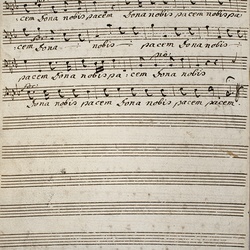 cem Dona nobis pacem Dona nobis pacem Dona nobis pa
cem Dona nobis pacem Dona nobis
pacem Dona nobis pa cem Dona nobis
Dona nobis pacem Dona nobis pacem pacem